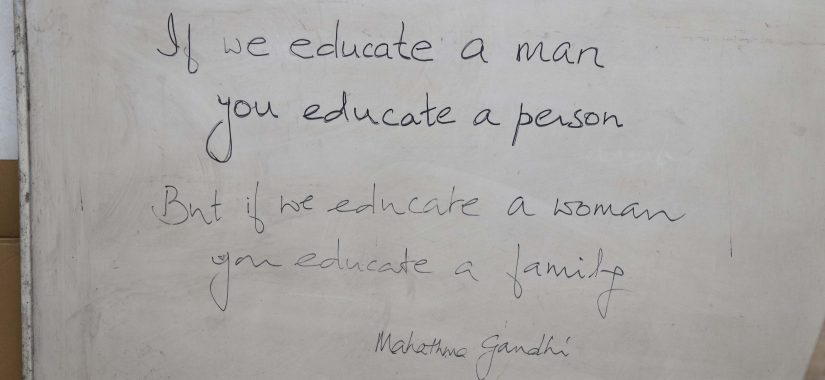 If we educate a man
you educate a person
But if we educate a woman
you educate a family
Mahathma Gandhi